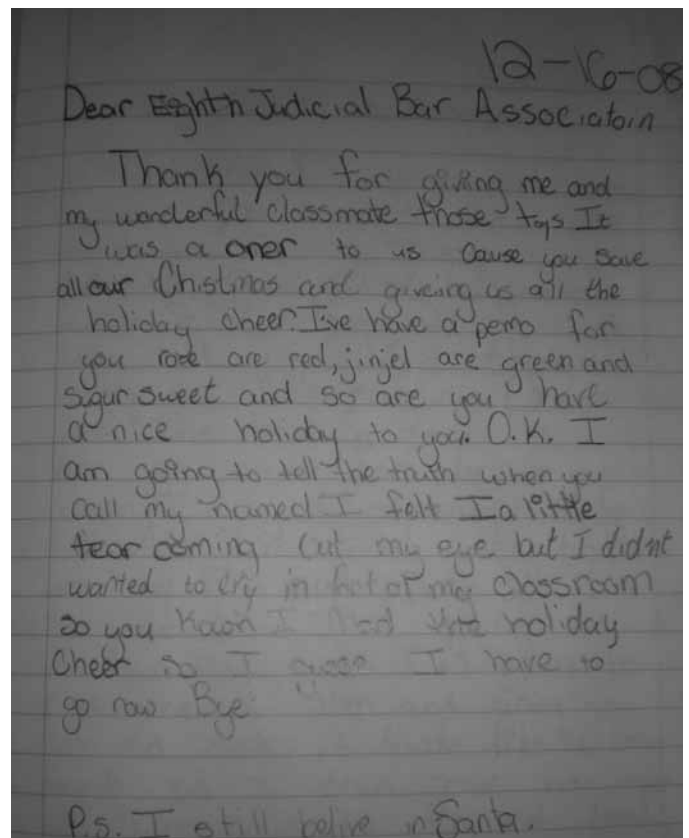 12-16-08
Dear Eighth Judicial Bar Associatoin
Thank you for giving me and
my wonderful classmate those toys It
was a oner to us Cause you save
all our Chistmas and giveing us all the
holiday cheer. I've have a pemo for
you rose are red, jinjel are green and
sugur sweet and so are you have
a nice holiday to you. O.K. I
am going to tell the truth when you
call my named I felt I a little
tear coming out my eye but I didnt
wanted to cry in of my classroom
so you Kown I had holiday
Cheer so I I have to
go now Bye
P.s. I still belive in Santa.